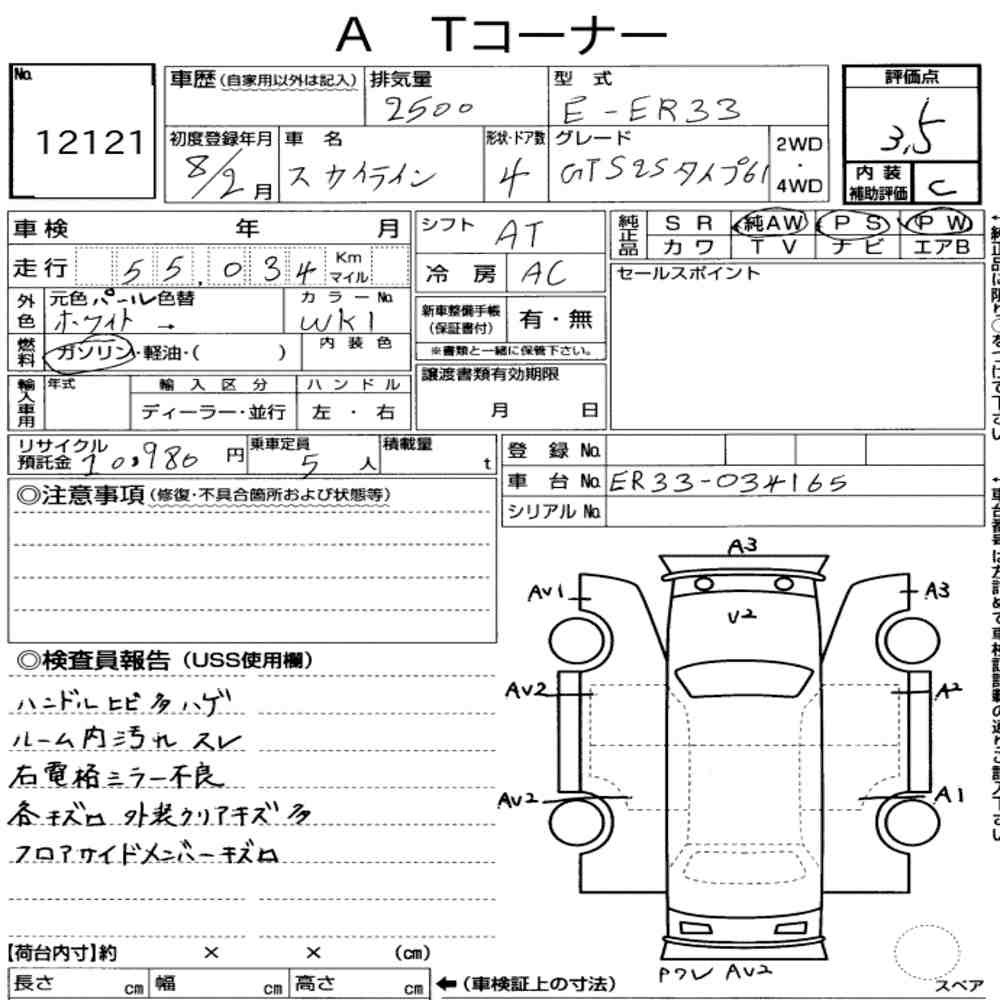 A Tコーナー
No.
12121
車歴(自家用以外は記入)
排気量
2500
型 式
E-ER33
評価点
3,5
内装補助評価
C
初度登録年月
8/2月
車 名
スカイライン
形状・ドア数
4
グレード
GTS25タイプG
2WD
・
4WD
車検 年 月
走行 55,034 Km マイル
外色
元色 パール 色替
ホワイト →
カラーNo.
WK1
燃料
ガソリン・軽油・( )
内装色
輸入車用
年式
輸入区分
ディーラー・並行
ハンドル
左 ・ 右
シフト AT
冷 房 AC
新車整備手帳(保証書付)
有・無
※書類と一緒に保管下さい。
譲渡書類有効期限
月 日
純正品
SR 純AW PS PW
カワ TV ナビ エアB
セールスポイント
リサイクル預託金 10,980円
乗車定員 5人
積載量 t
登 録 No.
車 台 No. ER33-034165
シリアル No.
◎注意事項(修復・不具合箇所および状態等)
◎検査員報告(USS使用欄)
ハンドルヒビ多ハゲ
ルーム内汚れ スレ
右電格ミラー不良
各キズロ 外装クリアキズ多
フロアサイドメンバーキズロ
A3
AV1
A3
V2
AV2
A2
AV2
A1
Pワレ AV2
スペア
【荷台内寸】約 × × (cm)
長さ cm 幅 cm 高さ cm
←(車検証上の寸法)